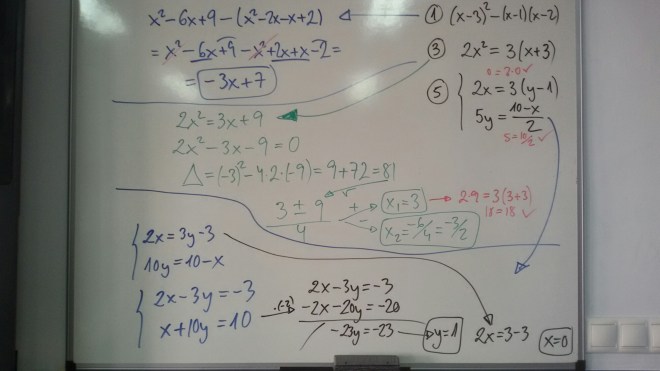 x²-6x+9-(x²-2x-x+2)
= x²-6x+9-x²+2x+x-2=
= -3x+7
① (x-3)²-(x-1)(x-2)
③ 2x²=3(x+3)
0=3·0✓
⑤ { 2x=3(y-1)
5y=10-x/2
5=10/2 ✓
2x²=3x+9
2x²-3x-9=0
Δ=(-3)²-4·2·(-9)=9+72=81
3±9/4
+ x₁=3
- x₂=-6/4=-3/2
2·9=3(3+3)
18=18 ✓
{ 2x=3y-3
10y=10-x
{ 2x-3y=-3
x+10y=10
2x-3y=-3
-2x-20y=-20
-23y=-23
y=1
2x=3-3
x=0